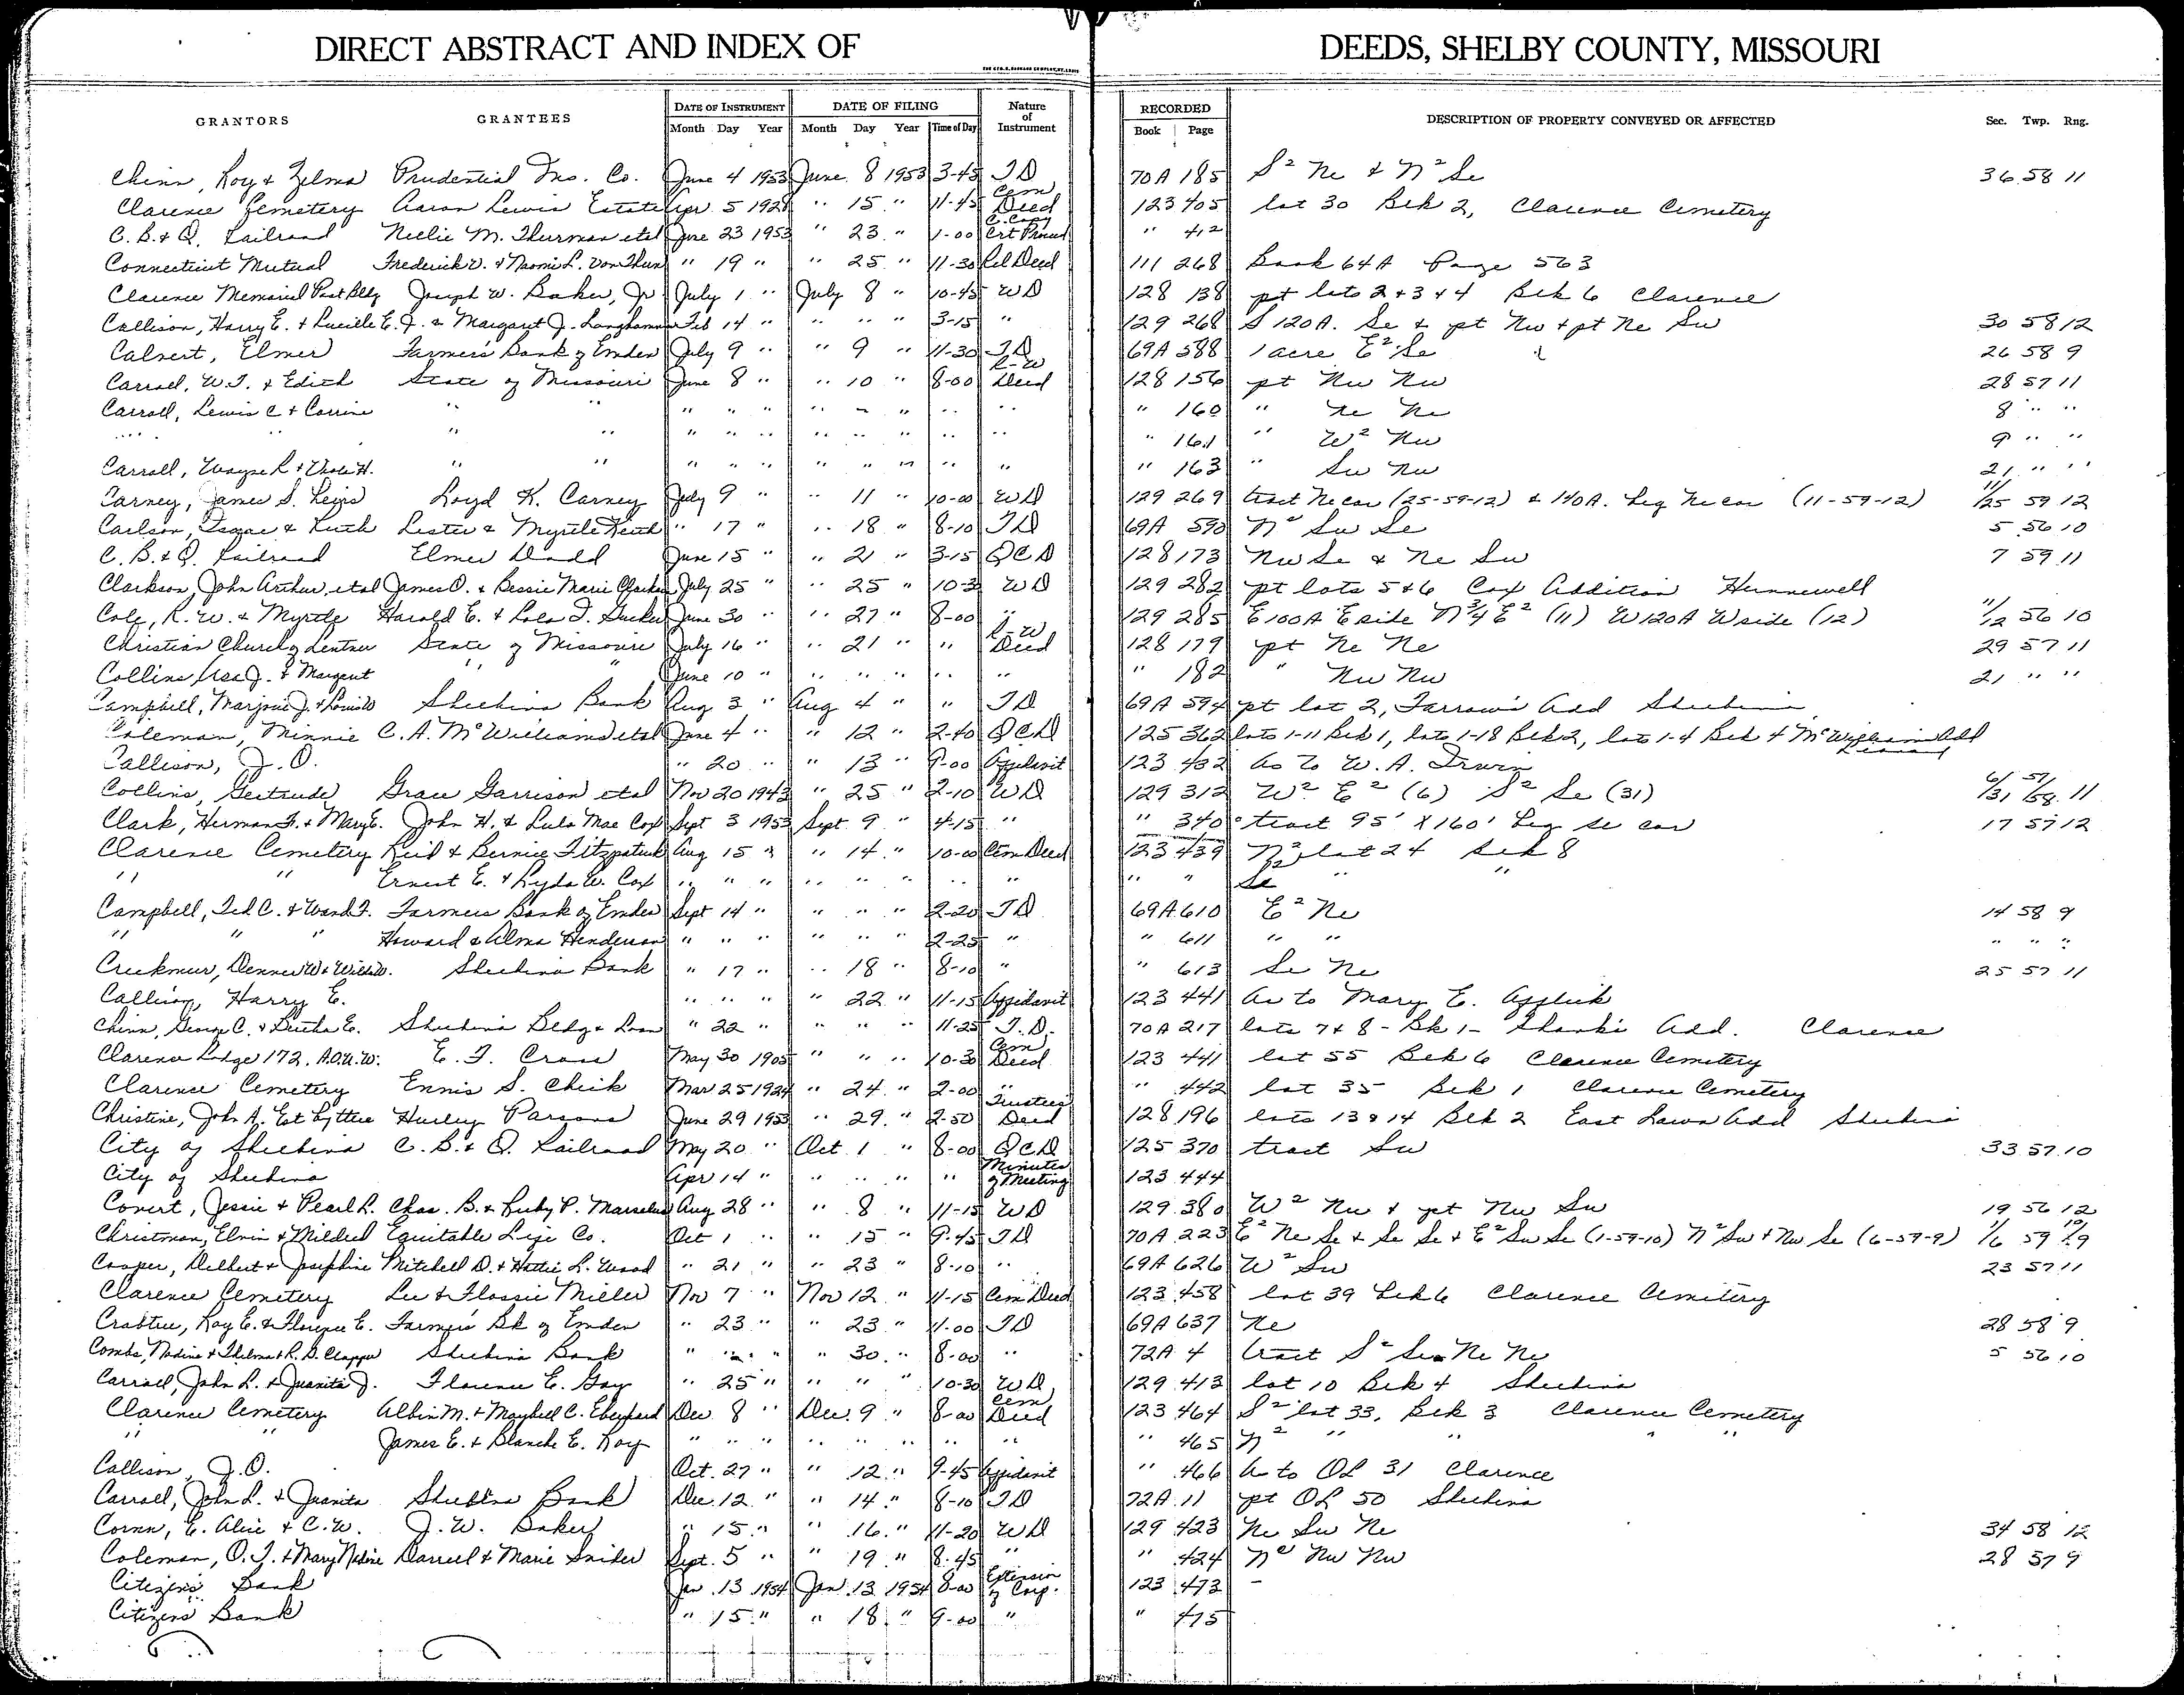 DIRECT ABSTRACT AND INDEX OF DEEDS, SHELBY COUNTY, MISSOURI
GRANTORS GRANTEES DATE OF INSTRUMENT DATE OF FILING Nature of Instrument RECORDED DESCRIPTION OF PROPERTY CONVEYED OR AFFECTED Sec. Twp. Rng.
Month Day Year Month Day Year Time of Day Book Page
Chinn, Roy & Zelma Prudential Ins. Co. June 4 1953 June 8 1953 3-45 TD 70A 185 S² Ne & N² Se 36 58 11
Clarence Cemetery Aaron Lewis Estate Apr 5 1928 " 15 " 11-45 Cem Deed 123 405 lot 30 Blk 2, Clarence Cemetery
C. B. & Q. Railroad Nellie M. Thurman etal June 23 1953 " 23 " 1-00 " 412
Connecticut Mutual Frederick V. & Naomi L. VonThun " 19 " " 25 " 11-30 Rel Deed 111 268 Book 64A Page 563
Clarence Memorial Post Bldg Joseph W. Baker, Jr July 1 " July 8 " 10-45 WD 128 138 pt lots 2+3+4 Blk 6 Clarence
Callison, Harry E. & Lucille E. J. & Margaret J. Langhammer Feb 14 " " " " 3-15 " 129 268 S 120A. Se & pt Nw & pt Ne Sw 30 58 12
Calvert, Elmer Farmer's Bank of Emden July 9 " " 9 " 11-30 TD 69A 588 1 acre E² Se 26 58 9
Carroll, W.T. & Edith State of Missouri June 8 " " 10 " 8-00 R-W Deed 128 156 pt Nw Nw 28 57 11
Carroll, Lewis C & Corrine " " " " " " " " " " " 160 " Ne Ne 8 " "
" " " " " " " " " " " " " 161 " W² Nw 9 " "
Carroll, Wayne R & Viola H. " " " " " " " " " " " 163 " Sw Nw 21 " "
Carney, James S. Loyd K. Carney July 9 " " 11 " 10-00 WD 129 269 tract Ne cor (25-59-12) & 140A. beg Ne cor (11-59-12) 11/25 59 12
Carlson, Isaac & Ruth Lester & Myrtle Keith " 17 " " 18 " 8-10 TD 69A 590 N² Sw Se 5 56 10
C. B. & Q. Railroad Elmer Dodd June 15 " " 21 " 3-15 QCD 128 173 Nw Se & Ne Sw 7 59 11
Clarkson, John Arthur, etal James O. & Bessie Marie Clarkson July 25 " " 25 " 10-3 WD 129 282 pt lots 5 & 6 Cox Addition Hunnewell
Cole, R. W. & Myrtle Harold E. & Lola T. June 30 " " 27 " 8-00 " 129 285 E100A E side N¾ E² (11) W120A W side (12) 11/12 56 10
Christian Church of Lentner State of Missouri July 16 " " 21 " " R-W Deed 128 179 pt Ne Ne 29 57 11
Collins, Asa J. & Margaret " " June 10 " " " " " " " 182 " Nw Nw 21 " "
Campbell, Marjorie J. & Shelbina Bank Aug 3 " Aug 4 " " TD 69A 594 pt lot 2, Farrow's Add Shelbina
Coleman, Minnie C. A. McWilliams etal June 4 " " 12 " 2-40 QCD 125 362 lots 1-11 Blk 1, lots 1-18 Blk 2, lots 1-4 Blk 4 McWilliams Add
Callison, J. O. " 20 " " 13 " 9-00 Affidavit 123 432 As To W. A. Irwin
Collins, Gertrude Grace Garrison etal Nov 20 1943 " 25 " 2-10 WD 129 312 W² E² (6) S² Se (31) 6/31 57/58 11
Clark, Herman F. & Mary E. John H. & Lula Mae Cox Sept 3 1953 Sept. 9 " 4-15 " " 340 tract 95' X 160' beg Se cor 17 57 12
Clarence Cemetery Reid & Bernice Fitzpatrick Aug 15 " " 14 " 10-00 Cem Deed 123 439 N² lot 24 Blk 8
" " Ernest E. & Lyda W. Cox " " " " " " " " " " " "
Campbell, Ted C. & Wanda F. Farmers Bank of Emden Sept 14 " " " " 2-20 TD 69A 610 E² Ne 14 58 9
" " " Howard & Alma Henderson " " " " " " 2-25 " " 611 " " " " "
Creekmur, Denver W & Shelbina Bank " 17 " " 18 " 8-10 " " 613 Se Ne 25 57 11
Callison, Harry E. " " " " 22 " 11-15 Affidavit 123 441 As to Mary E.
Chinn, George C. & Bertha E. Shelbina Bldg & Loan " 22 " " " " 11-25 T.D. 70A 217 lots 7 & 8 - Blk 1 - Shanks Add. Clarence
Clarence Lodge 172, A.O.U.W. E. T. Cross May 30 1905 " " " 10-30 Cem Deed 123 441 lot 55 Blk 6 Clarence Cemetery
Clarence Cemetery Ennis S. Cheek Mar 25 1924 " 24 " 2-00 " " 442 lot 35 Blk 1 Clarence Cemetery
Christine, John A. Est by ttee Hurley Parsons June 29 1953 " 29 " 2-50 Trustees Deed 128 196 lots 13 & 14 Blk 2 East Lawn Add Shelbina
City of Shelbina C. B. & Q. Railroad May 20 " Oct 1 " 8-00 QCD 125 370 tract Sw 33 57 10
City of Shelbina Apr 14 " " " " " Minutes of Meeting 123 444
Covert, Jessie & Pearl L. Chas. B. & Ruby P. Aug 28 " " 8 " 11-15 WD 129 380 W² Nw & pt Nw Sw 19 56 12
Christman, Elvin & Mildred Equitable Life Co. Oct 1 " " 15 " 9-45 TD 70A 223 E² Ne Se & Se Se & E² Sw Se (1-59-10) N² Sw & Nw Se (6-59-9) 1/6 59 10/9
Cooper, Delbert & Josephine Mitchell D. & Hattie L. Wood " 21 " " 23 " 8-10 " 69A 626 W² Sw 23 57 11
Clarence Cemetery Lee & Flossie Miller Nov 7 " Nov 12 " 11-15 Cem Deed 123 458 lot 39 Blk 6 Clarence Cemetery
Crabtree, Ray E. & Florence E. Farmers Bk of Emden " 23 " " 23 " 11-00 TD 69A 637 Ne 28 58 9
Combs, Nadine & Thelma & R. D. Clapper Shelbina Bank " " " " 30 " 8-00 " 72A 4 tract S² Se Ne Ne 5 56 10
Carroll, John L. & Juanita J. Florence E. Gay " 25 " " " " 10-30 WD 129 413 lot 10 Blk 4 Shelbina
Clarence Cemetery Albin M. & Maybell C. Eberhard Dec 8 " Dec. 9 " 8-00 Cem Deed 123 464 S² lot 33, Blk 3 Clarence Cemetery
" " James E. & Blanche E. Roy " " " " " " " " " 465 N² " " " "
Callison, J. O. Oct. 27 " " 12 " 9-45 Affidavit " 466 As to OL 31 Clarence
Carroll, John L. & Juanita Shelbina Bank Dec. 12 " " 14 " 8-10 TD 72A 11 pt OL 50 Shelbina
E. Alice & C. W. J. W. Baker " 15 " " 16 " 11-20 WD 129 423 Ne Sw Ne 34 58 12
Coleman, O. T. & Mary Nadine Darrell & Marie Snider Sept. 5 " " 19 " 8-45 " " 424 N² Nw Nw 28 57 9
Citizens Bank Jan 13 1954 Jan 13 1954 8-00 Extension of Corp. 123 473 -
Citizens Bank " 15 " " 18 " 9-00 " " 475